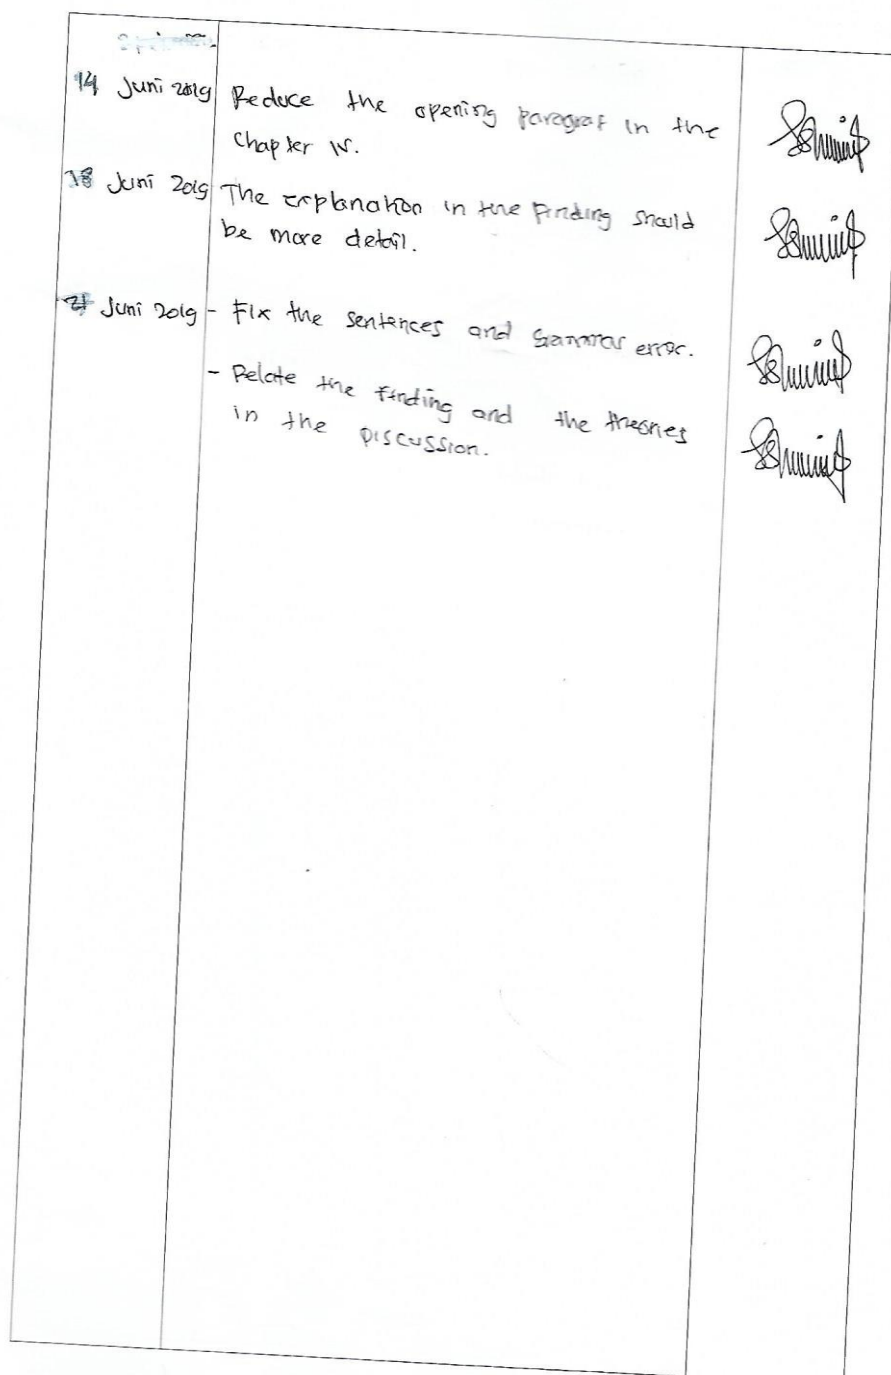 14 Juni 2019 Reduce the opening paragraf in the
Chapter IV.
18 Juni 2019 The explanation in the Finding should
be more detail.
21 Juni 2019 - Fix the sentences and Grammar error.
- Relate the Finding and the theories
in the Discussion.